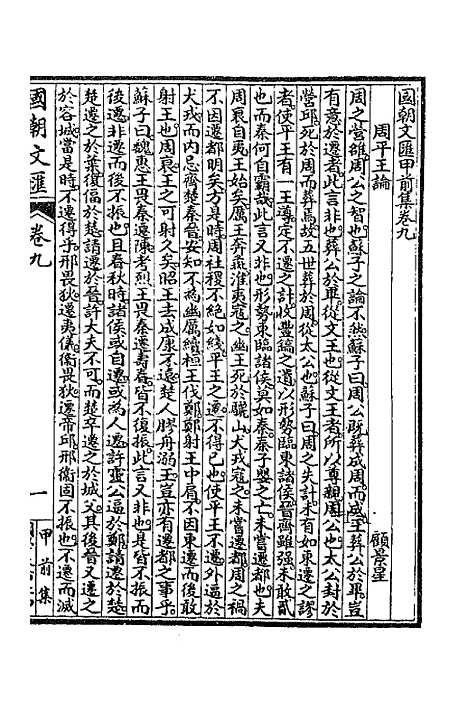 國朝文匯甲前集卷九
周平王論
顧景星
周之營雒周公之智也蘇子之論不然蘇子曰周公既葬成周而成王葬公於畢豈
有意於遷者此言非也葬公於畢從文王也從文王者所以尊親周公也太公封於
營邱死於周而葬焉故五世葬於周從太公也蘇子曰周之失計未有如東遷之謬
者使平王有一王導定不遷之計收豐鎬之遺以形勢臨東諸侯晉齊雖强未敢貳
也而秦何自霸哉此言又非也形勢東臨諸侯莫如秦秦子嬰之亡未嘗遷都也夫
周衰自夷王始矣厲王奔彘淮夷寇之幽王死於驪山犬戎寇之未嘗遷都周之禍
不因遷都明矣方是時周社稷不絕如綫平王之遷不得已也使平王不遷外逼於
犬戎而内忌齊楚秦晉安知不為幽厲桓王伐鄭鄭射王中肩不因東遷而
射王也周衰王之可射久矣昭王去成康不遠楚人膠舟溺王豈亦有遷都之事乎
蘇子曰魏惠王畏秦遷陳考烈王畏秦遷壽春皆不復振此言又非也是皆不振而
後遷非遷而後不振也且春秋時諸侯或自遷或為人遷許靈公逼於鄭請遷於楚
楚遷之於葉復偪於楚請遷於晉許大夫不可而楚卒遷之於城父其後晉又遷之
於容城當是時不遷得乎邢畏狄遷夷儀衞畏狄遷帝邱邢衞固不振也不遷而滅
國朝文匯
卷九
一
甲前集